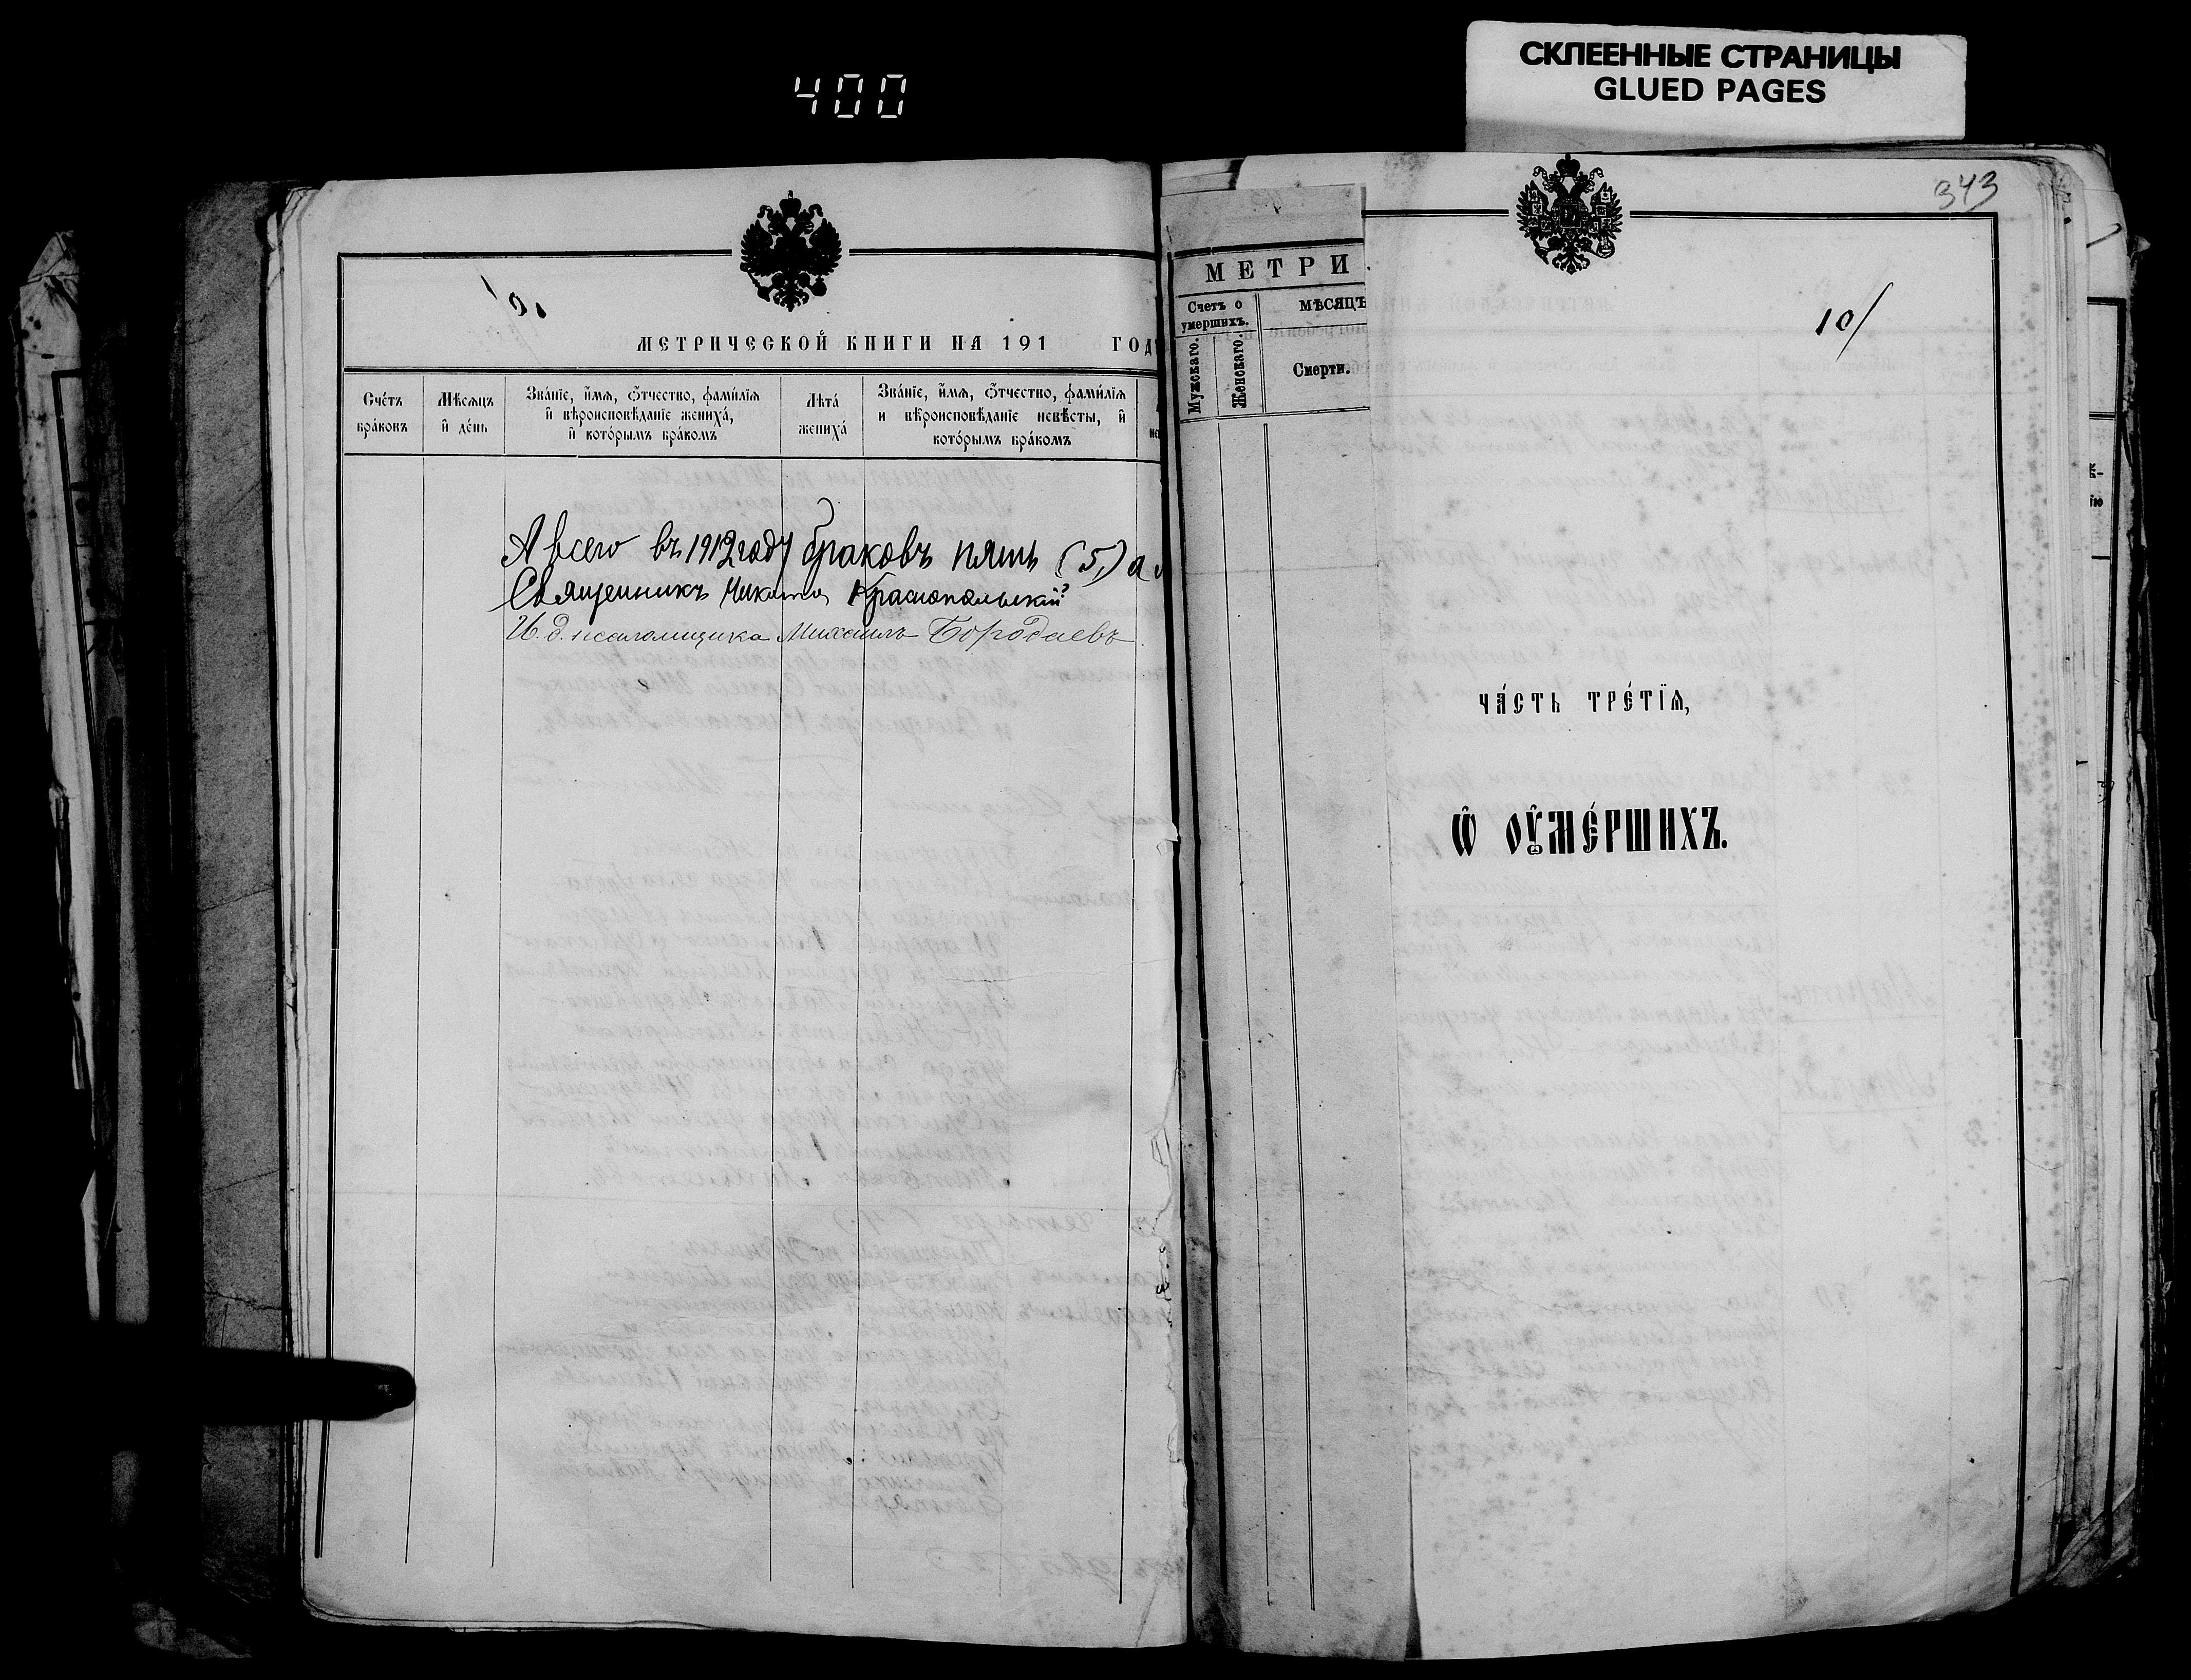 400
СКЛЕЕННЫЕ СТРАНИЦЫ
GLUED PAGES
МЕТРИЧЕСКОЙ КНИГИ НА 191 ГОД
Сче́тъ бра́ковъ
Мѣ́сяцъ и҆ де́нь
Зва́нїе, и҆́мѧ, ѻ҆́тчество, фами́лїѧ
и҆ вѣроисповѣ́данїе жениха́,
и҆ кото́рымъ бра́комъ
Лѣта́ жениха́
Зва́нїе, и҆́мѧ, ѻ҆́тчество, фами́лїѧ
и вѣроисповѣ́данїе невѣ́сты, и҆
кото́рымъ бра́комъ
А всего въ 1912 году браковъ пять (5) а
Священникъ Никита Краснопольскій
И. д. псаломщика Михаилъ Бородаевъ
МЕТРИ
Счетъ о умершихъ.
МѢСЯЦЪ
Мужскаго.
Женскаго.
Смерти.
343
10/
ЧА́СТЬ ТРЕ́ТЇѦ,
Ѽ ОУ҆МЕ́РШИХЪ.